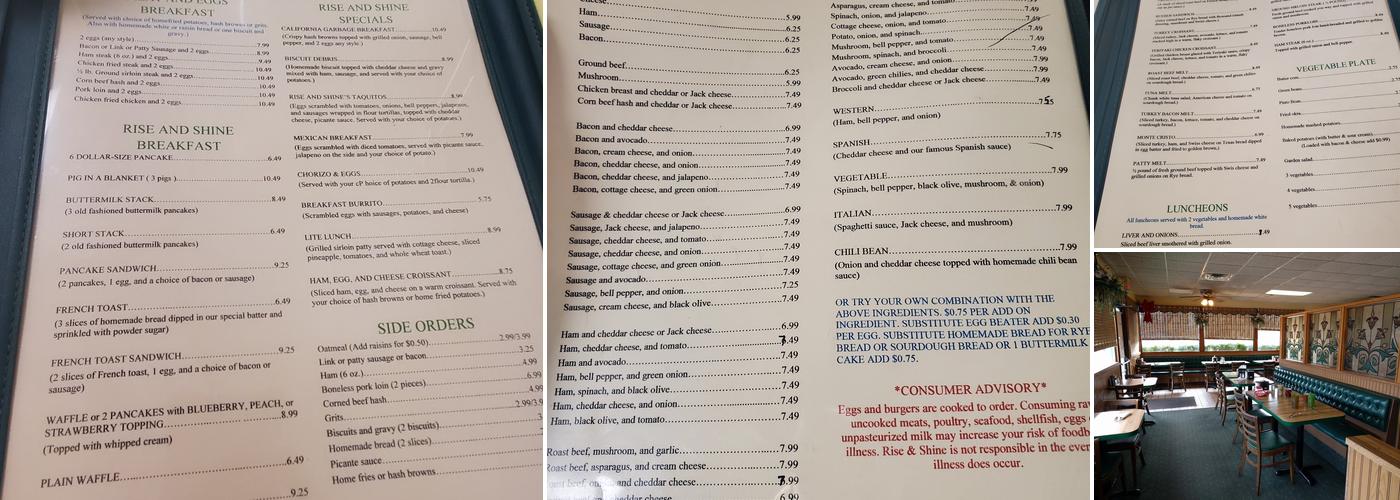 BREAKFAST
(Served with choice of homefried potatoes, hash browns or grits.
Also with homemade white or raisin bread or one biscuit and
gravy.)
2 eggs (any style)
Bacon or Link or Patty Sausage and 2 eggs 7.99
Ham steak (8 oz.) and 2 eggs 8.99
Chicken fried steak and 2 eggs 10.49
½ lb. Ground sirloin steak and 2 eggs 10.49
Corn beef hash and 2 eggs 10.49
Pork loin and 2 eggs 10.49
Chicken fried chicken and 2 eggs 10.49
RISE AND SHINE
BREAKFAST
6 DOLLAR-SIZE PANCAKE 6.49
PIG IN A BLANKET ( 3 pigs ) 10.49
BUTTERMILK STACK 8.49
(3 old fashioned buttermilk pancakes)
SHORT STACK 6.49
(2 old fashioned buttermilk pancakes)
PANCAKE SANDWICH 9.25
(2 pancakes, 1 egg, and a choice of bacon or sausage)
FRENCH TOAST 6.49
(3 slices of homemade bread dipped in our special batter and
sprinkled with powder sugar)
FRENCH TOAST SANDWICH 9.25
(2 slices of French toast, 1 egg, and a choice of bacon or
sausage)
WAFFLE or 2 PANCAKES with BLUEBERRY, PEACH, or
STRAWBERRY TOPPING 8.99
(Topped with whipped cream)
PLAIN WAFFLE 6.49
9.25
RISE AND SHINE
SPECIALS
CALIFORNIA GARBAGE BREAKFAST 10.49
(Crispy hash browns topped with grilled onion, sausage, bell
pepper, and 2 eggs any style )
BISCUIT DEBRIS 8.99
(Homemade biscuit topped with cheddar cheese and gravy
mixed with ham, sausage, and served with your choice of
potatoes.)
RISE AND SHINE'S TAQUITOS 8.99
(Eggs scrambled with tomatoes, onions, bell peppers, jalapenos,
and sausages wrapped in flour tortillas, topped with cheddar
cheese, picante sauce. Served with your choice of potatoes.)
MEXICAN BREAKFAST 7.99
(Eggs scrambled with diced tomatoes, served with picante sauce,
jalapeno on the side and your choice of potato.)
CHORIZO & EGGS 10.49
(Served with your cP hoice of potatoes and 2flour tortilla.)
BREAKFAST BURRITO 5.75
(Scrambled eggs with sausages, potatoes, and cheese)
LITE LUNCH 8.99
(Grilled sirloin patty served with cottage cheese, sliced
pineapple, tomatoes, and whole wheat toast.)
HAM, EGG, AND CHEESE CROISSANT 8.75
(Sliced ham, egg, and cheese on a warm croissant. Served with
your choice of hash browns or home fried potatoes.)
SIDE ORDERS
Oatmeal (Add raisins for $0.50) 2.99/3.99
Link or patty sausage or bacon 3.25
Ham (6 oz.) 4.99
Boneless pork loin (2 pieces) 6.99
Corned beef hash 4.99
Grits 2.99/3.9
Biscuits and gravy (2 biscuits)
Homemade bread (2 slices)
Picante sauce
Home fries or hash browns
Cheese 5.99
Ham 6.25
Sausage 6.25
Bacon 6.25
Ground beef 6.25
Mushroom 5.99
Chicken breast and cheddar or Jack cheese 7.49
Corn beef hash and cheddar or Jack cheese 7.49
Bacon and cheddar cheese 6.99
Bacon and avocado 7.49
Bacon, cream cheese, and onion 7.49
Bacon, cheddar cheese, and onion 7.49
Bacon, cheddar cheese, and jalapeno 7.49
Bacon, cottage cheese, and green onion 7.49
Sausage & cheddar cheese or Jack cheese 6.99
Sausage, Jack cheese, and jalapeno 7.49
Sausage, cheddar cheese, and tomato 7.49
Sausage, cheddar cheese, and onion 7.49
Sausage, cottage cheese, and green onion 7.49
Sausage and avocado 7.49
Sausage, bell pepper, and onion 7.25
Sausage, cream cheese, and black olive 7.49
Ham and cheddar cheese or Jack cheese 6.99
Ham, cheddar cheese, and tomato 7.49
Ham and avocado 7.49
Ham, bell pepper, and green onion 7.49
Ham, spinach, and black olive 7.49
Ham, cheddar cheese, and onion 7.49
Ham, black olive, and tomato 7.49
Roast beef, mushroom, and garlic 7.99
Roast beef, asparagus, and cream cheese 7.99
and cheddar cheese 7.99
cheddar cheese 6.99
Asparagus, cream cheese, and tomato
Spinach, onion, and jalapeno 7.49
Cottage cheese, onion, and tomato 7.49
Potato, onion, and spinach
Mushroom, bell pepper, and tomato 7.49
Mushroom, spinach, and broccoli 7.49
Avocado, cream cheese, and onion 7.99
Avocado, green chilies, and cheddar cheese 7.99
Broccoli and cheddar or Jack cheese 7.49
WESTERN
(Ham, bell pepper, and onion)
SPANISH 7.75
(Cheddar cheese and our famous Spanish sauce)
VEGETABLE 7.99
(Spinach, bell pepper, black olive, mushroom, & onion)
ITALIAN 7.99
(Spaghetti sauce, Jack cheese, and mushroom)
CHILI BEAN 7.99
(Onion and cheddar cheese topped with homemade chili bean
sauce)
OR TRY YOUR OWN COMBINATION WITH THE
ABOVE INGREDIENTS. $0.75 PER ADD ON
INGREDIENT. SUBSTITUTE EGG BEATER ADD $0.30
PER EGG. SUBSTITUTE HOMEMADE BREAD FOR RYE
BREAD OR SOURDOUGH BREAD OR 1 BUTTERMILK
CAKE ADD $0.75.
*CONSUMER ADVISORY*
Eggs and burgers are cooked to order. Consuming raw
uncooked meats, poultry, seafood, shellfish, eggs
unpasteurized milk may increase your risk of foodb
illness. Rise & Shine is not responsible in the even
illness does occur.
TURKEY CROISSANT
TERIYAKI CHICKEN CROISSANT
ROAST BEEF MELT
TUNA MELT 6.75
TURKEY BACON MELT 7.49
MONTE CRISTO 6.99
PATTY MELT 7.49
½ pound of fresh ground beef topped with Swiss cheese and
grilled onions on Rye bread.
LUNCHEONS
All luncheons served with 2 vegetables and homemade white
bread.
LIVER AND ONIONS
Sliced beef liver smothered with grilled onion.
VEGETABLE PLATE
Butter corn
Green beans
Pinto Bean
Fried okra
Homemade mashed potatoes
Baked potatoes (with butter & sour cream)
(Loaded with bacon & cheese add $0.99)
Garden salad
3 vegetables
4 vegetables
5 vegetables